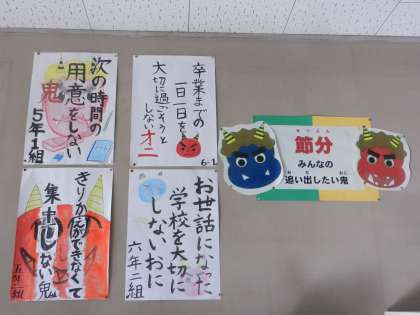 次の時間の
用意をしない
鬼
5年1組
卒業までの
一日一日を
大切に過ごそうと
しないオニ
6-1
節分
みんなの
追い出したい鬼
きりかえができなくて
集中しない鬼
お世話になった
学校を大切に
しないおに
六年二組